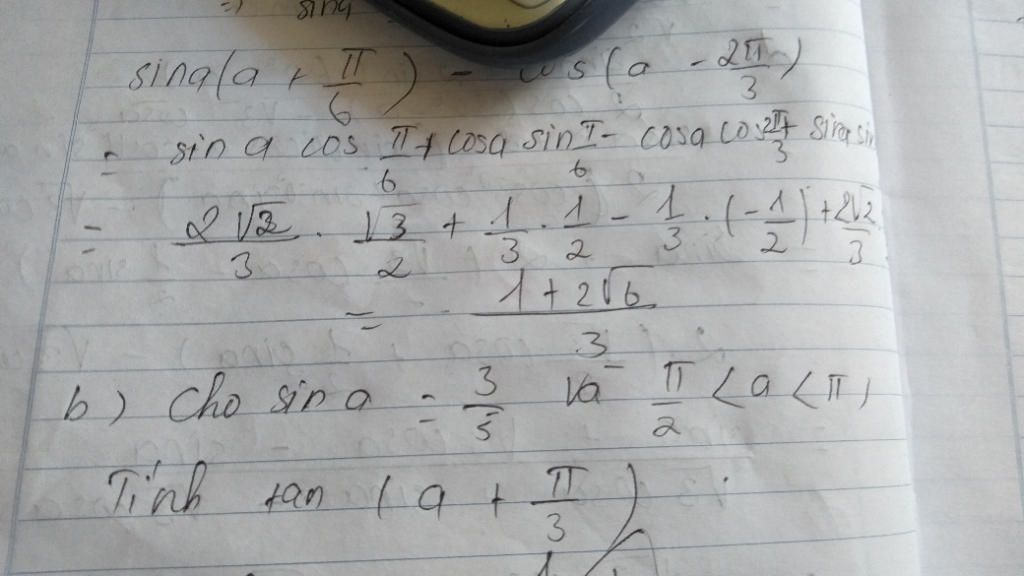 sina
sina(a + π/6) - cos(a - 2π/3)
= sin a cos π/6 + cosa sin π/6 - cosa cos 2π/3 + sina sin
= 2√2/3 . √3/2 + 1/3 . 1/2 - 1/3 . (-1/2) + 2√2/3
= 1 + 2√6/3
b) Cho sin a = 3/5 và π/2 < a < π,
Tính tan (a + π/3)